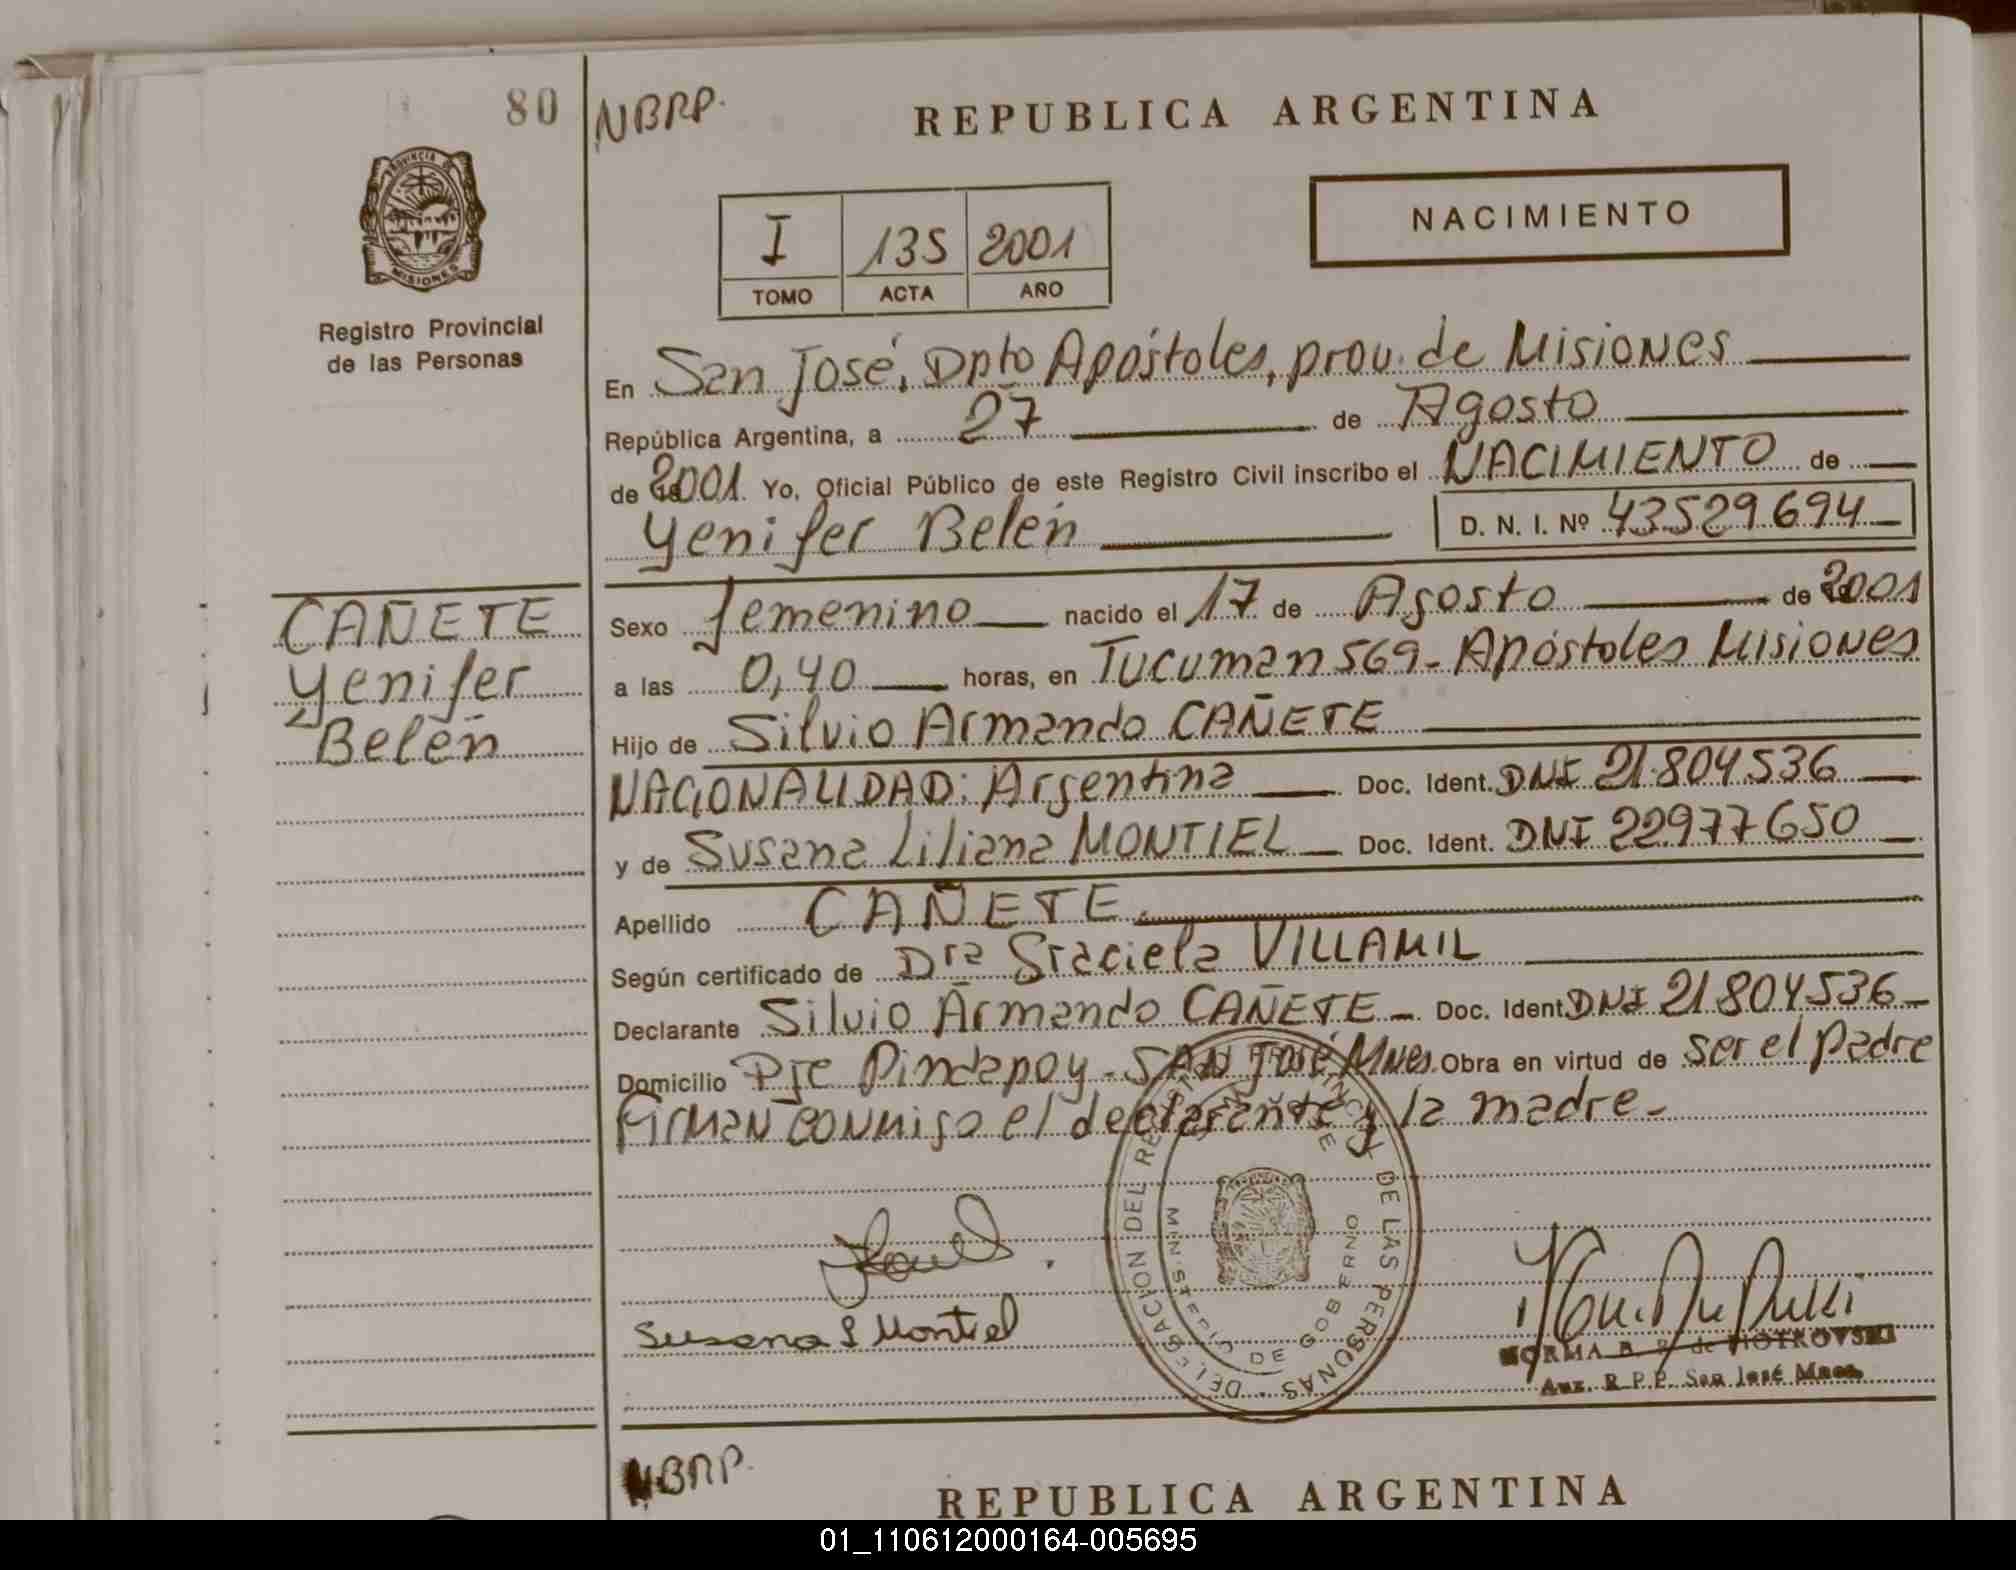 80
NBRP.
REPUBLICA ARGENTINA
PROVINCIA DE
MISIONES
Registro Provincial
de las Personas
I 135 2001
TOMO ACTA AÑO
NACIMIENTO
En San José, Dpto Apóstoles, prov. de Misiones
República Argentina, a 27 de Agosto
de 2001. Yo, Oficial Público de este Registro Civil inscribo el NACIMIENTO de
Yenifer Belén D. N. I. Nº 43529694
CAÑETE
Yenifer
Belén
Sexo femenino nacido el 17 de Agosto de 2001
a las 0,40 horas, en Tucuman 569- Apóstoles Misiones
Hijo de Silvio Armando CAÑETE
NACIONALIDAD: Argentina Doc. Ident. DNI 21.804536
y de Susana Liliana MONTIEL Doc. Ident. DNI 22977650
Apellido CAÑETE
Según certificado de Dra Graciela VILLAMIL
Declarante Silvio Armando CAÑETE - Doc. Ident. DNI 21804536
Domicilio Pje Pindapoy - SAN José Mnes. Obra en virtud de ser el padre
Firman conmigo el declarante y la madre-
DELEGACION DEL REGISTRO PROVINCIAL DE LAS PERSONAS
MINISTERIO DE GOBERNO
Susana L Montiel
NORMA B. R. de PIOTROVSKI
Aux. R.P.P. San José Mnes.
NBRP.
REPUBLICA ARGENTINA
01_110612000164-005695